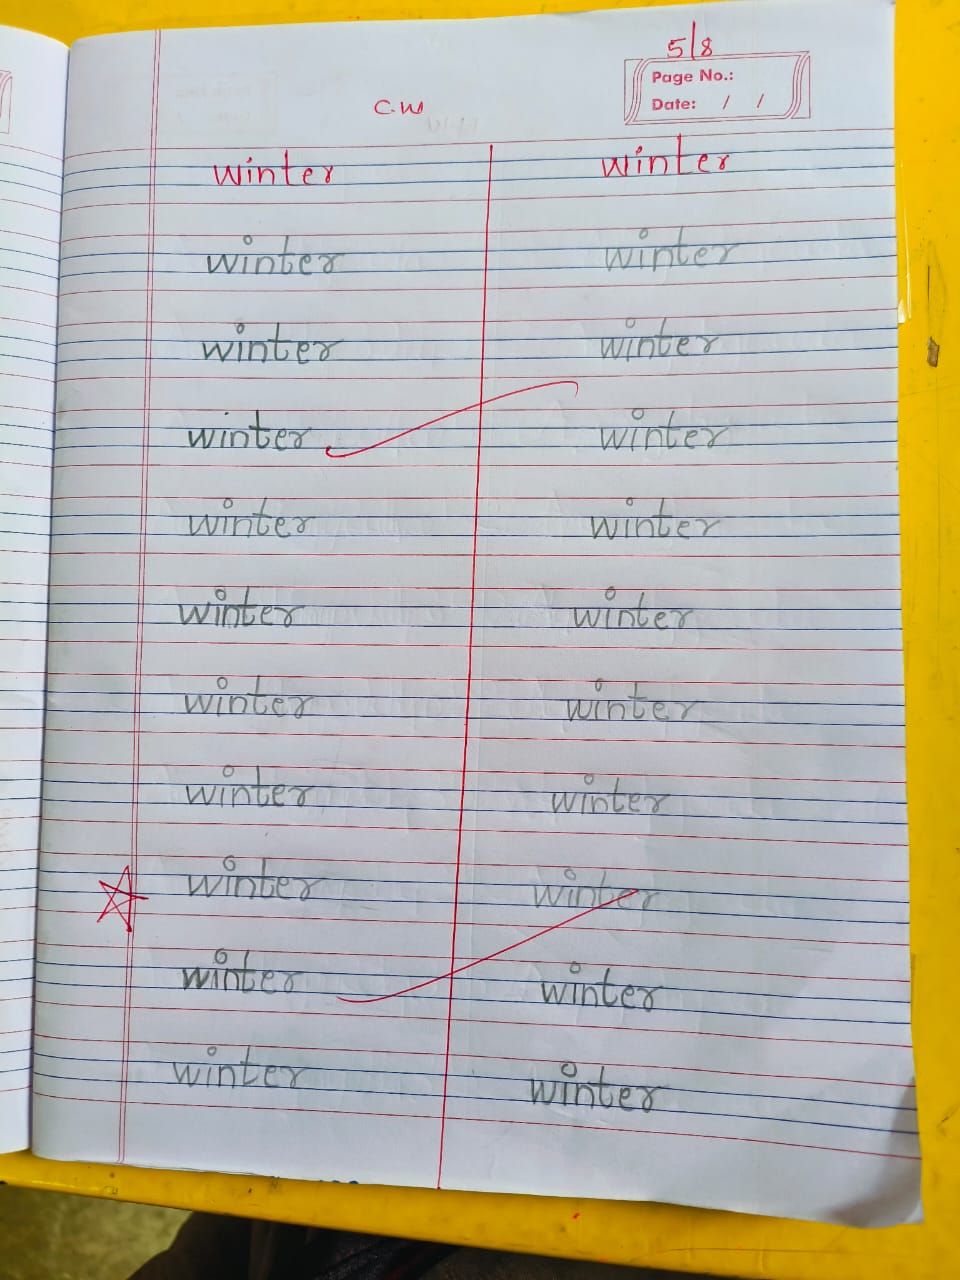 5/8
Page No.:
Date: / /
C.W
winter winter
winter winter
winter winter
winter winter
winter winter
winter winter
winter winter
winter winter
winter winter
winter winter
winter winter